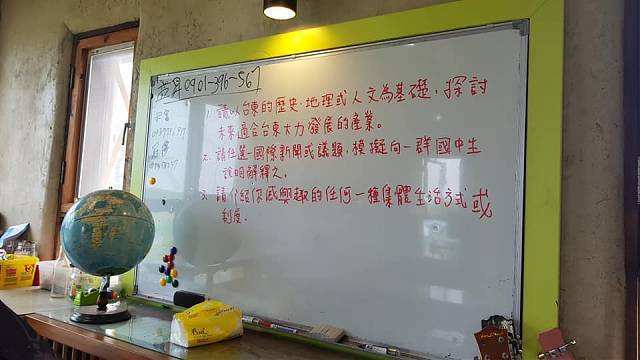 0901-396-567
1. 請以台東的歷史、地理或人文為基礎，探討
未來適合台東大力發展的產業。
2. 請任選一國際新聞或議題，模擬向一群國中生
說明解釋之。
3. 請介紹你感興趣的任何一種集體生活方式或
制度。